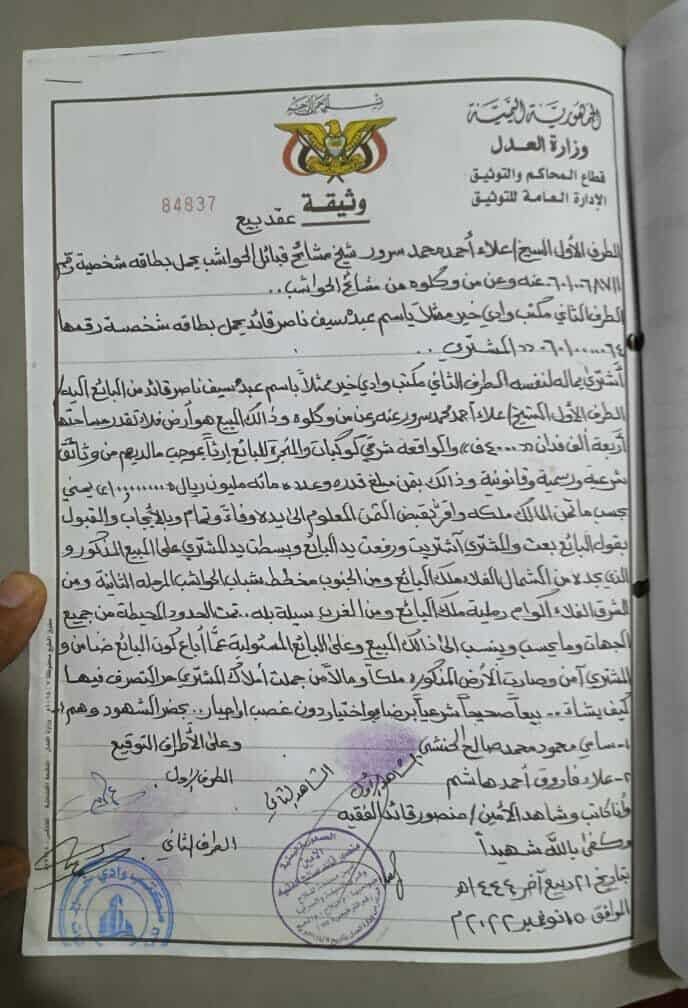 بسم الله الرحمن الرحيم
الجمهورية اليمنية
وزارة العدل
قطاع المحاكم والتوثيق
الإدارة العامة للتوثيق
84837
وثيقة عقد بيع
الطرف الأول الشيخ/ علاء أحمد محمد سرور شيخ مشائخ قبائل الحواشب يحمل بطاقه شخصية رقم
عنه وعن من وكلوه من مشائخ الحواشب..
الطرف الثاني مكتب وادي خير ممثلاً باسم عبده سيف ناصر قائد يحمل بطاقه شخصية رقمها
المشتري..
أشترى بماله لنفسه الطرف الثاني مكتب وادي خير ممثلاً باسم عبده سيف ناصر قائد من البائع إليه/
الطرف الأول الشيخ/ علاء أحمد محمد سرور عنه وعن من وكلوه وذالك المبيع هو أرض فلاء تقدر مساحتها
أربعة ألف فدان «٤٠٠٠ف» والواقعه شرقي كوكبات والمنجرة للبائع إرثاً بموجب مالديهم من وثائق
شرعية ورسمية وقانونية وذالك بثمن مبلغ قدره وعدده مائه مليون ريال يمني
بحسب ماثمن المالك ملكه وأقر بقبض الثمن المعلوم الى يده وفاءً وتمام وبالأيجاب والقبول
بقوله البائع بعت والمشتري أشتريت ورفعت يد البائع وبسطت يد المشتري على المبيع المذكور و
الذي يحده من الشمال الفلاء ملك البائع ومن الجنوب مخطط شباب الحواشب المرحله الثانية ومن
الشرق الفلاء أكوام رملية ملك البائع ومن الغرب سيلة بله.. تمت الحدود المحيطة من جميع
الجهات وما يحسب وينسب الى ذالك المبيع وعلى البائع المسئولية عمّا أباع كون البائع ضامن و
المشتري آمن وصارت الأرض المذكوره ملكاً ومالاً من جملت أملاك المشتري حر التصرف فيها
كيف يشاء.. بيعاً صحيحاً شرعياً برضا واختيار دون غصب او اجبار.. بحضر الشهود وهم:
١- سامي محمود محمد صالح الحنشي
وعلى الأطراف التوقيع
٢- علاء فاروق أحمد هاشم
الشاهد الأول
الشاهد الثاني
الطرف الأول
وأنا كاتب وشاهد الأمين/ منصور قائد الفقيه
وكفى بالله شهيداً
الطرف الثاني
بتاريخ ٢١ ربيع آخر ١٤٤٤هـ
الموافق ١٥ نوفمبر ٢٠٢٢م